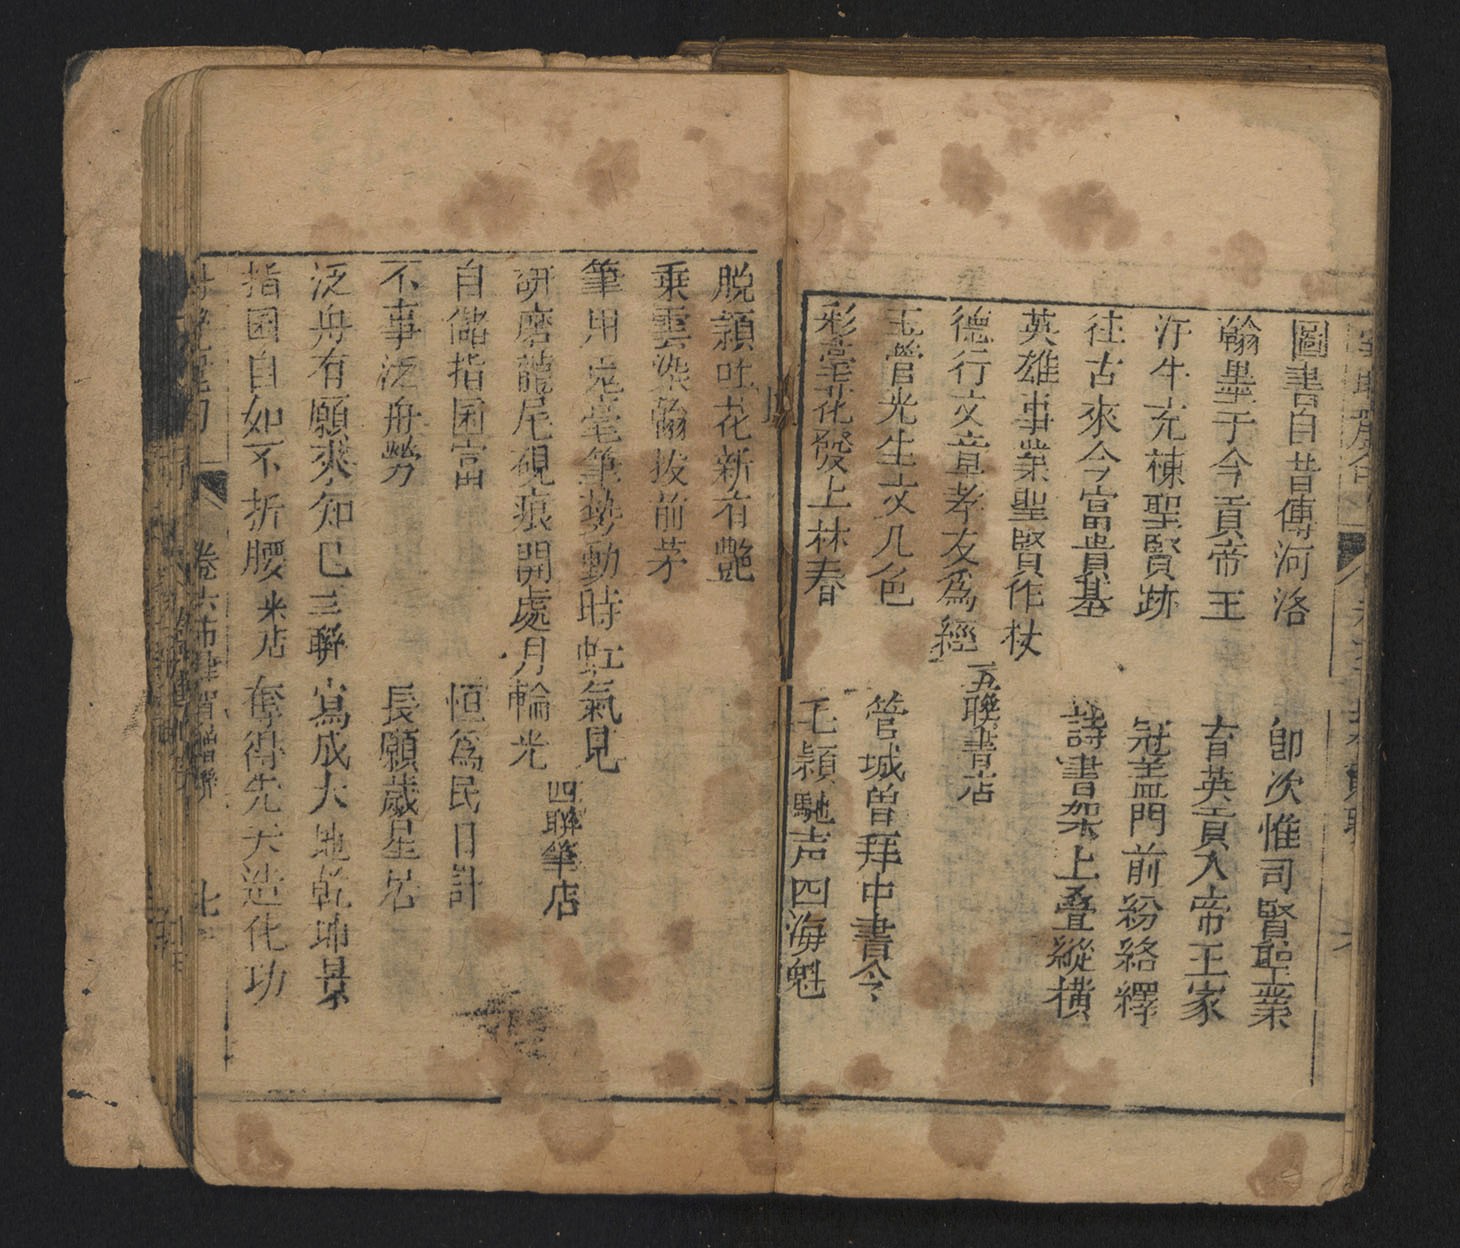 圖書自昔傳河洛　卽次惟司賢聖業
翰墨于今貢帝王　育英貢入帝王家
汗牛充棟聖賢跡　冠蓋門前紛絡繹
往古來今富貴基　詩書架上疊縱橫
英雄事業聖賢作杖
德行文章孝友爲經　五聯書店
玉管光生文几色　管城曽拜中書令
彩毫花發上林春　毛穎馳声四海魁
脫穎吐花新有艷
乗雲染翰拔前茅
筆用毫筆勢動時虹氣見
研磨龍尾硯痕開處月輪光　四聯筆店
自儲指囷富　恒爲民日計
不事泛舟勞　長願歲星居
泛舟有願來知已三聯　寫成大地乾坤景
指囷自如不折腰米店　奪得先天造化功
卷六